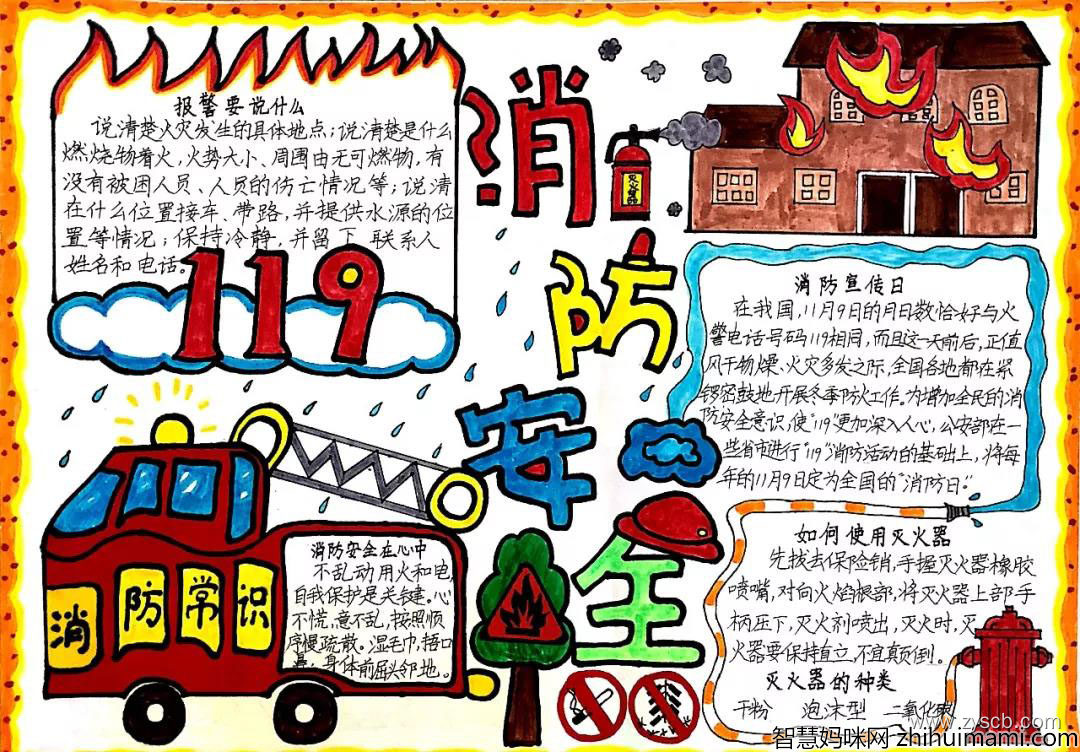 报警要说什么
说清楚火灾发生的具体地点；说清楚是什么
燃烧物着火，火势大小、周围由无可燃物，有
没有被困人员、人员的伤亡情况等；说清
在什么位置接车、带路，并提供水源的位
置等情况；保持冷静，并留下联系人
姓名和电话。
119
消
防
安
全
灭火器
消防宣传日
在我国，11月9日的月日数恰好与火
警电话号码119相同，而且这一天前后，正值
风干物燥、火灾多发之际，全国各地都在紧
锣密鼓地开展冬季防火工作。为增加全民的消
防安全意识，使"119"更加深入人心，公安部在一
些省市进行"119"消防活动的基础上，将每
年的11月9日定为全国的"消防日"。
消防常识
消防安全在心中
不乱动用火和电，
自我保护是关键。心
不慌，意不乱，按照顺
序慢疏散。湿毛巾，捂口
鼻，身体前屈头邻地。
如何使用灭火器
先拔去保险销，手握灭火器橡胶
喷嘴，对向火焰根部，将灭火器上部手
柄压下，灭火剂喷出，灭火时，灭
火器要保持直立，不宜颠倒。
灭火器的种类
干粉 泡沫型 二氧化碳
www.zyscb.com
智慧妈咪网 zhihuimami.com